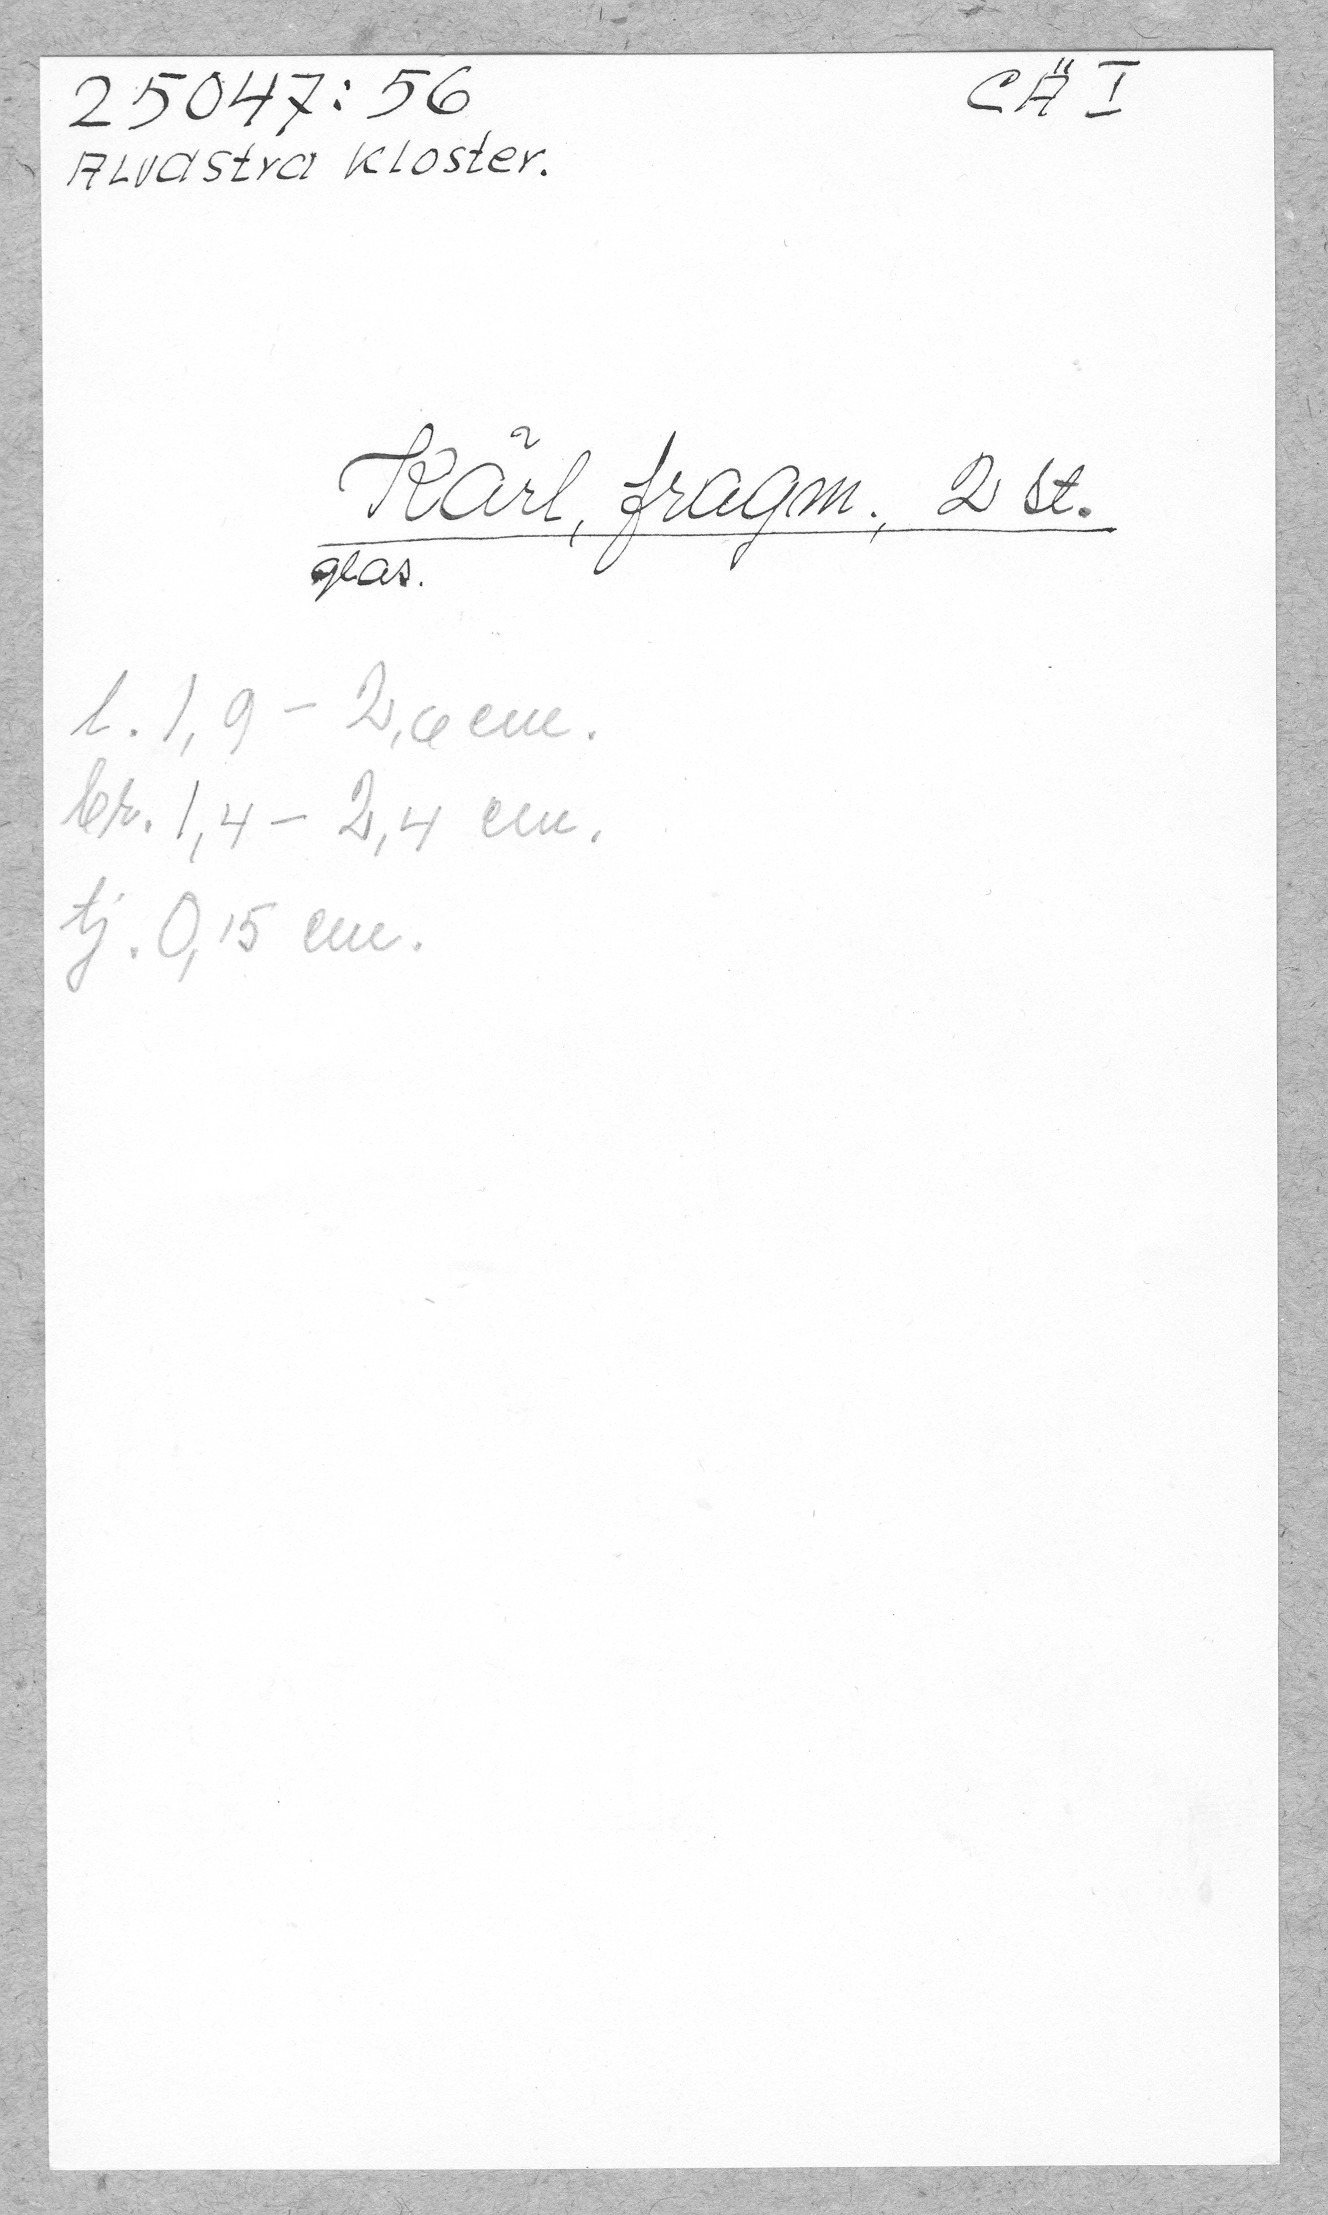 25047:56 CÄ I
Alvastra Kloster.
Kärl, fragm., 2 st.
glas.
l. 1,9 - 2,6 cm.
br. 1,4 - 2,4 cm.
tj. 0,15 cm.